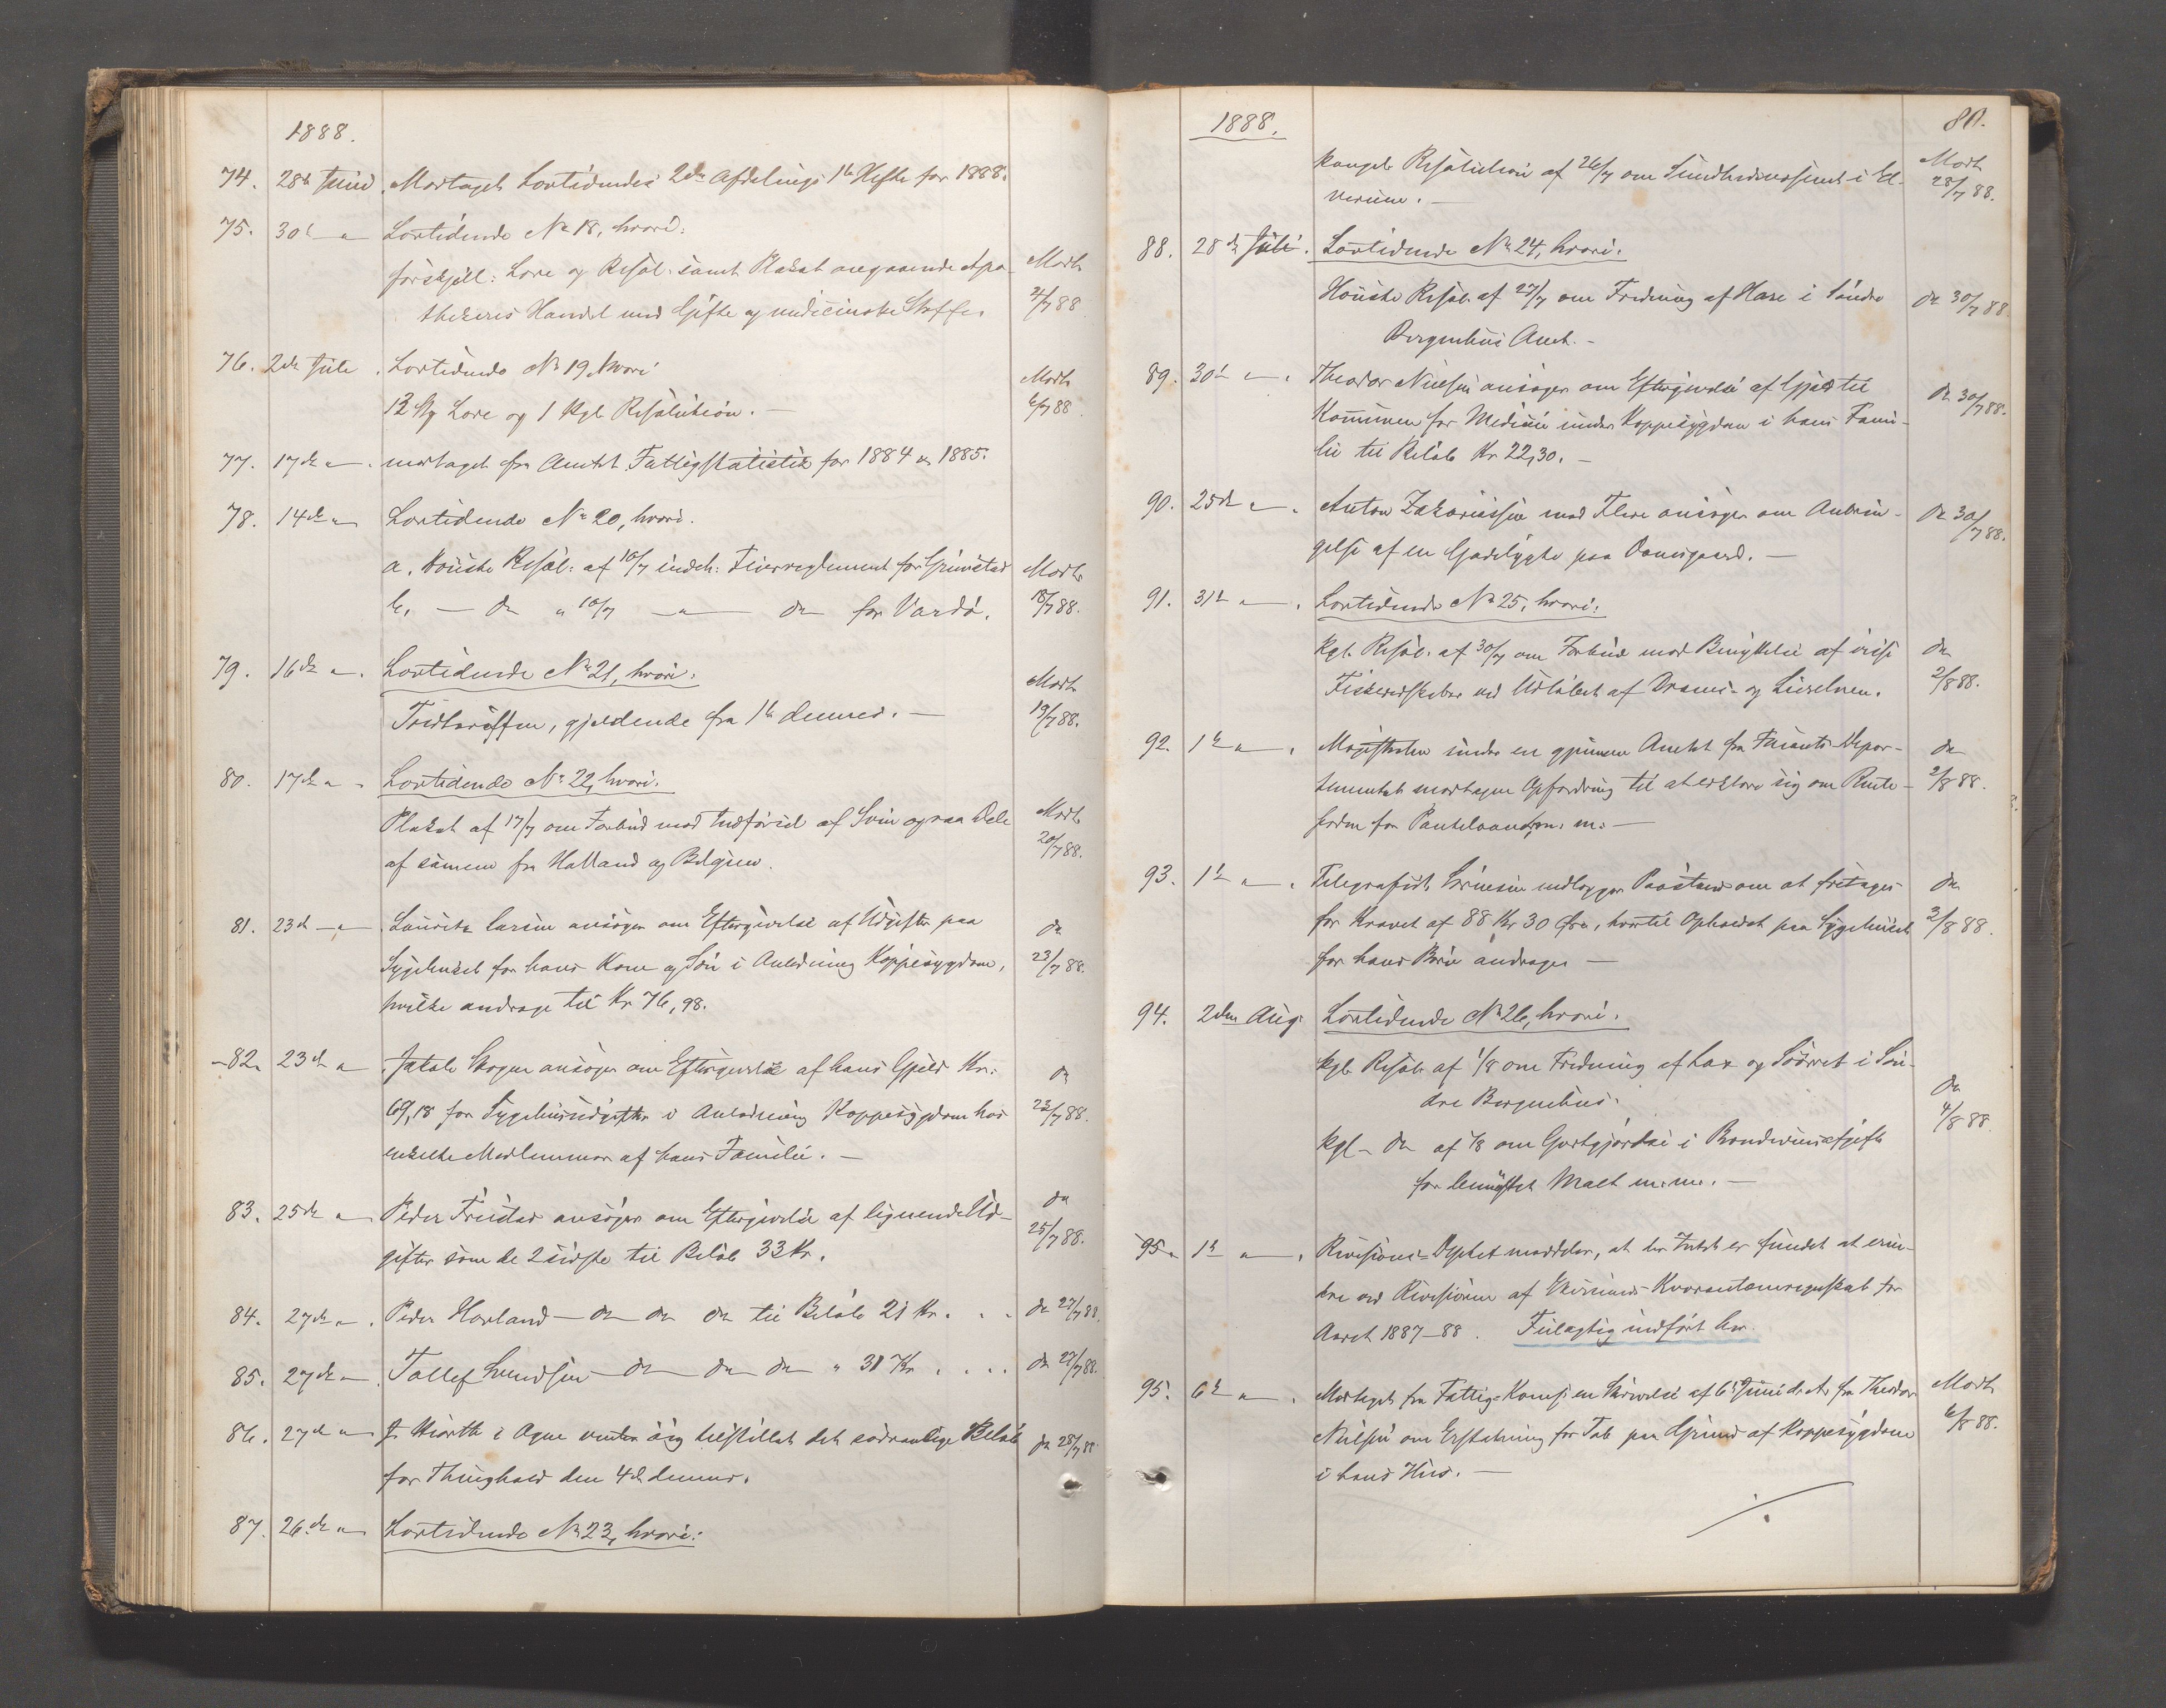 1888.
74. 28de Juni. Modtaget Lovtidendes 2den Afdelings 1ste Hefte for 1888.
75. 30te " Lovtidende No 18, hvori:
forskjell: Love og Resol: samt Plakat angaaende Apo- Modt.
thekeres Handel med Gifte og medicinske Stoffe. 2/7 88
76. 2den Juli. Lovtidende No 19, hvori Modt.
12 Ny Love og 1 Kgl. Resolution. — 6/7 88.
77. 17de " . modtaget fra Amtet Fattigstatistik for 1884 & 1885.
78. 14de " Lovtidende No 20, hvori.
a. Houiste Resol: af 10/7 indeh: Feierreglement for Grimstad Modt.
b. — do " 10/7 — " — do for Vardø. 18/7 88.
79. 16de " . Lovtidende No 21, hvori: Modt.
Toldtariffen, gjeldende fra 1ste dennes. — 19/7 88.
80. 17de " . Lovtidende No 22, hvori.
Plakat af 17/7 om Forbud mod Indførsel af Svin og raa Dele Modt.
af samme fra Holland og Belgien. 20/7 88.
81. 23de — " — . Lauritz Larsen ansøger om Eftergivelse af Udgifter paa do
Sygehuset for hans Kone og Søn i Anledning Koppesygdom, 23/7 88.
hvilke andrage til Kr. 76,98.
82. 23de " . Jakob Skogen ansøger om Eftergivelse af hans Gjeld Kr. do
69,18 for Sygehusudgifter i Anledning Koppesygdom hos 23/7 88.
enkelte Medlemmer af hans Familie. —
83. 25de " Peder Friestad ansøger om Eftergivelse af lignende Ud- do
gifter som de 2 sidste til Beløb 33 Kr. 25/7 88.
84. 27de " . Peder Hovland — do do do til Beløb 21 Kr. . . do 27/7 88.
85. 27de " . Tollef Svendsen do do do " 31 Kr . . . . do 27/7 88.
86. 27de " i Ogne venter sig tilstillet det sædvanlige Beløb do 28/7 88
for Thinghold den 4de dennes.
87. 26de " Lovtidende No 23, hvori:
1888. 80.
kongel. Resolution af 26/7 om Sundhedsvæsenet i El- Modt.
verum. — 28/7 88.
88. 28de Juli. Lovtidende No 24, hvori:
Houiste Resol. af 27/7 om Fredning af Hare i Søndre do 30/7 88.
Bergenhus Amt. —
89. 30te " . Theodor Nielsen ansøger om Eftergivelse af Gjæld til do 30/7 88.
Kommunen for Medicin under Koppesygdom i hans Fami-
lie til Beløb Kr 22,30. —
90. 25de " . Anton Zakariassen med Flere ansøger om Anbrin- do 30/7 88.
gelse af en Gadelygte paa Damsgaard. —
91. 31te " . Lovtidende No 25, hvori:
Kgl. Resol. af 30/7 om Forbud mod Benyttelse af visse do
Fiskeredskaber ved Udløbet af Drams- og Lierelven. 2/8 88.
92. 1ste " . Magistraten under en gjennem Amtet fra Finants-Depar- do
tementet modtagen Opfordring til at erklære sig om Rente- 2/8 88.
foden for Pantelaan m. m: —
93. 1ste " . Telegrafist Sørnesen nedlægger Paastand om at fritages do
for Kravet af 88 Kr 30 Øre, hvortil Opholdet paa Sygehuset 3/8 88.
for hans Børn andrager —
94. 2den Aug: Lovtidende No 26, hvori:
kgl. Resol. af 1/8 om Fredning af Lax og Søørret i Søn- do
dre Bergenhus. 4/8 88.
kgl — do af 1/8 om Godtgjørelse i Brændevinsafgift
for benyttet Malt m. m. —
95. 1ste " . Revisions-Depktet meddeler, at der Intet er fundet at erin-
dre ved Revisionen af Ekersunds Kvarantæneregnskab for
Aaret 1887–88. Feilagtig indført her.
95. 6te " . Modtaget fra Fattig-Komsj en Skrivelse af 6te Juni d. A. fra Theodor Modt.
Nielsen om Erstatning for Tab paa Grund af Koppesygdom 6/8 88.
i hans Hus. —